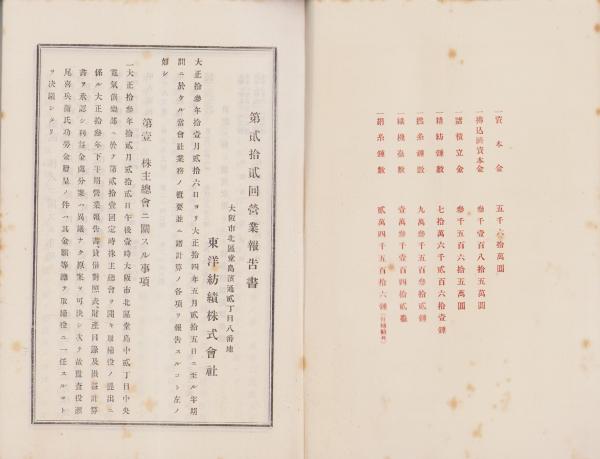 一資本金　五千　拾萬圓
一拂込濟資本金　參千壹百八拾五萬圓
一諸積立金　參千五百六拾五萬圓
一精紡錘數　七拾萬六千貳百六拾壹錘
一撚糸錘數　九萬參千五百參拾貳錘
一織機臺數　壹萬參千壹百四拾貳臺
一絹糸錘數　貳萬四千五百拾六錘
第貳拾貳回營業報告書
大阪市北區堂島濱通貳丁目八番地
東洋紡績株式會社
大正拾參年拾壹月貳拾六日ヨリ大正拾四年五月貳拾五日ニ至ル半期
間ニ於ケル當會社業務ノ概要並ニ諸計算ノ各項ヲ報告スルコト左ノ
如シ
第壹　株主總會ニ關スル事項
一大正拾參年拾貳月貳拾貳日午後壹時大阪市北區堂島中貳丁目中央
電氣俱樂部ニ於テ第貳拾壹回定時株主總會ヲ開キ取締役ノ提出ニ
係ル大正拾參年下半期營業報告書、貸借對照表、財產目錄及損益計算
書ヲ承認シ利益金處分案ハ異議ナク原案ヲ可決シ次テ故監査役瀬
尾喜兵衞氏功勞金贈呈ノ件ハ其金額等總テ取締役ニ一任スルコト
ヲ決議シタリ